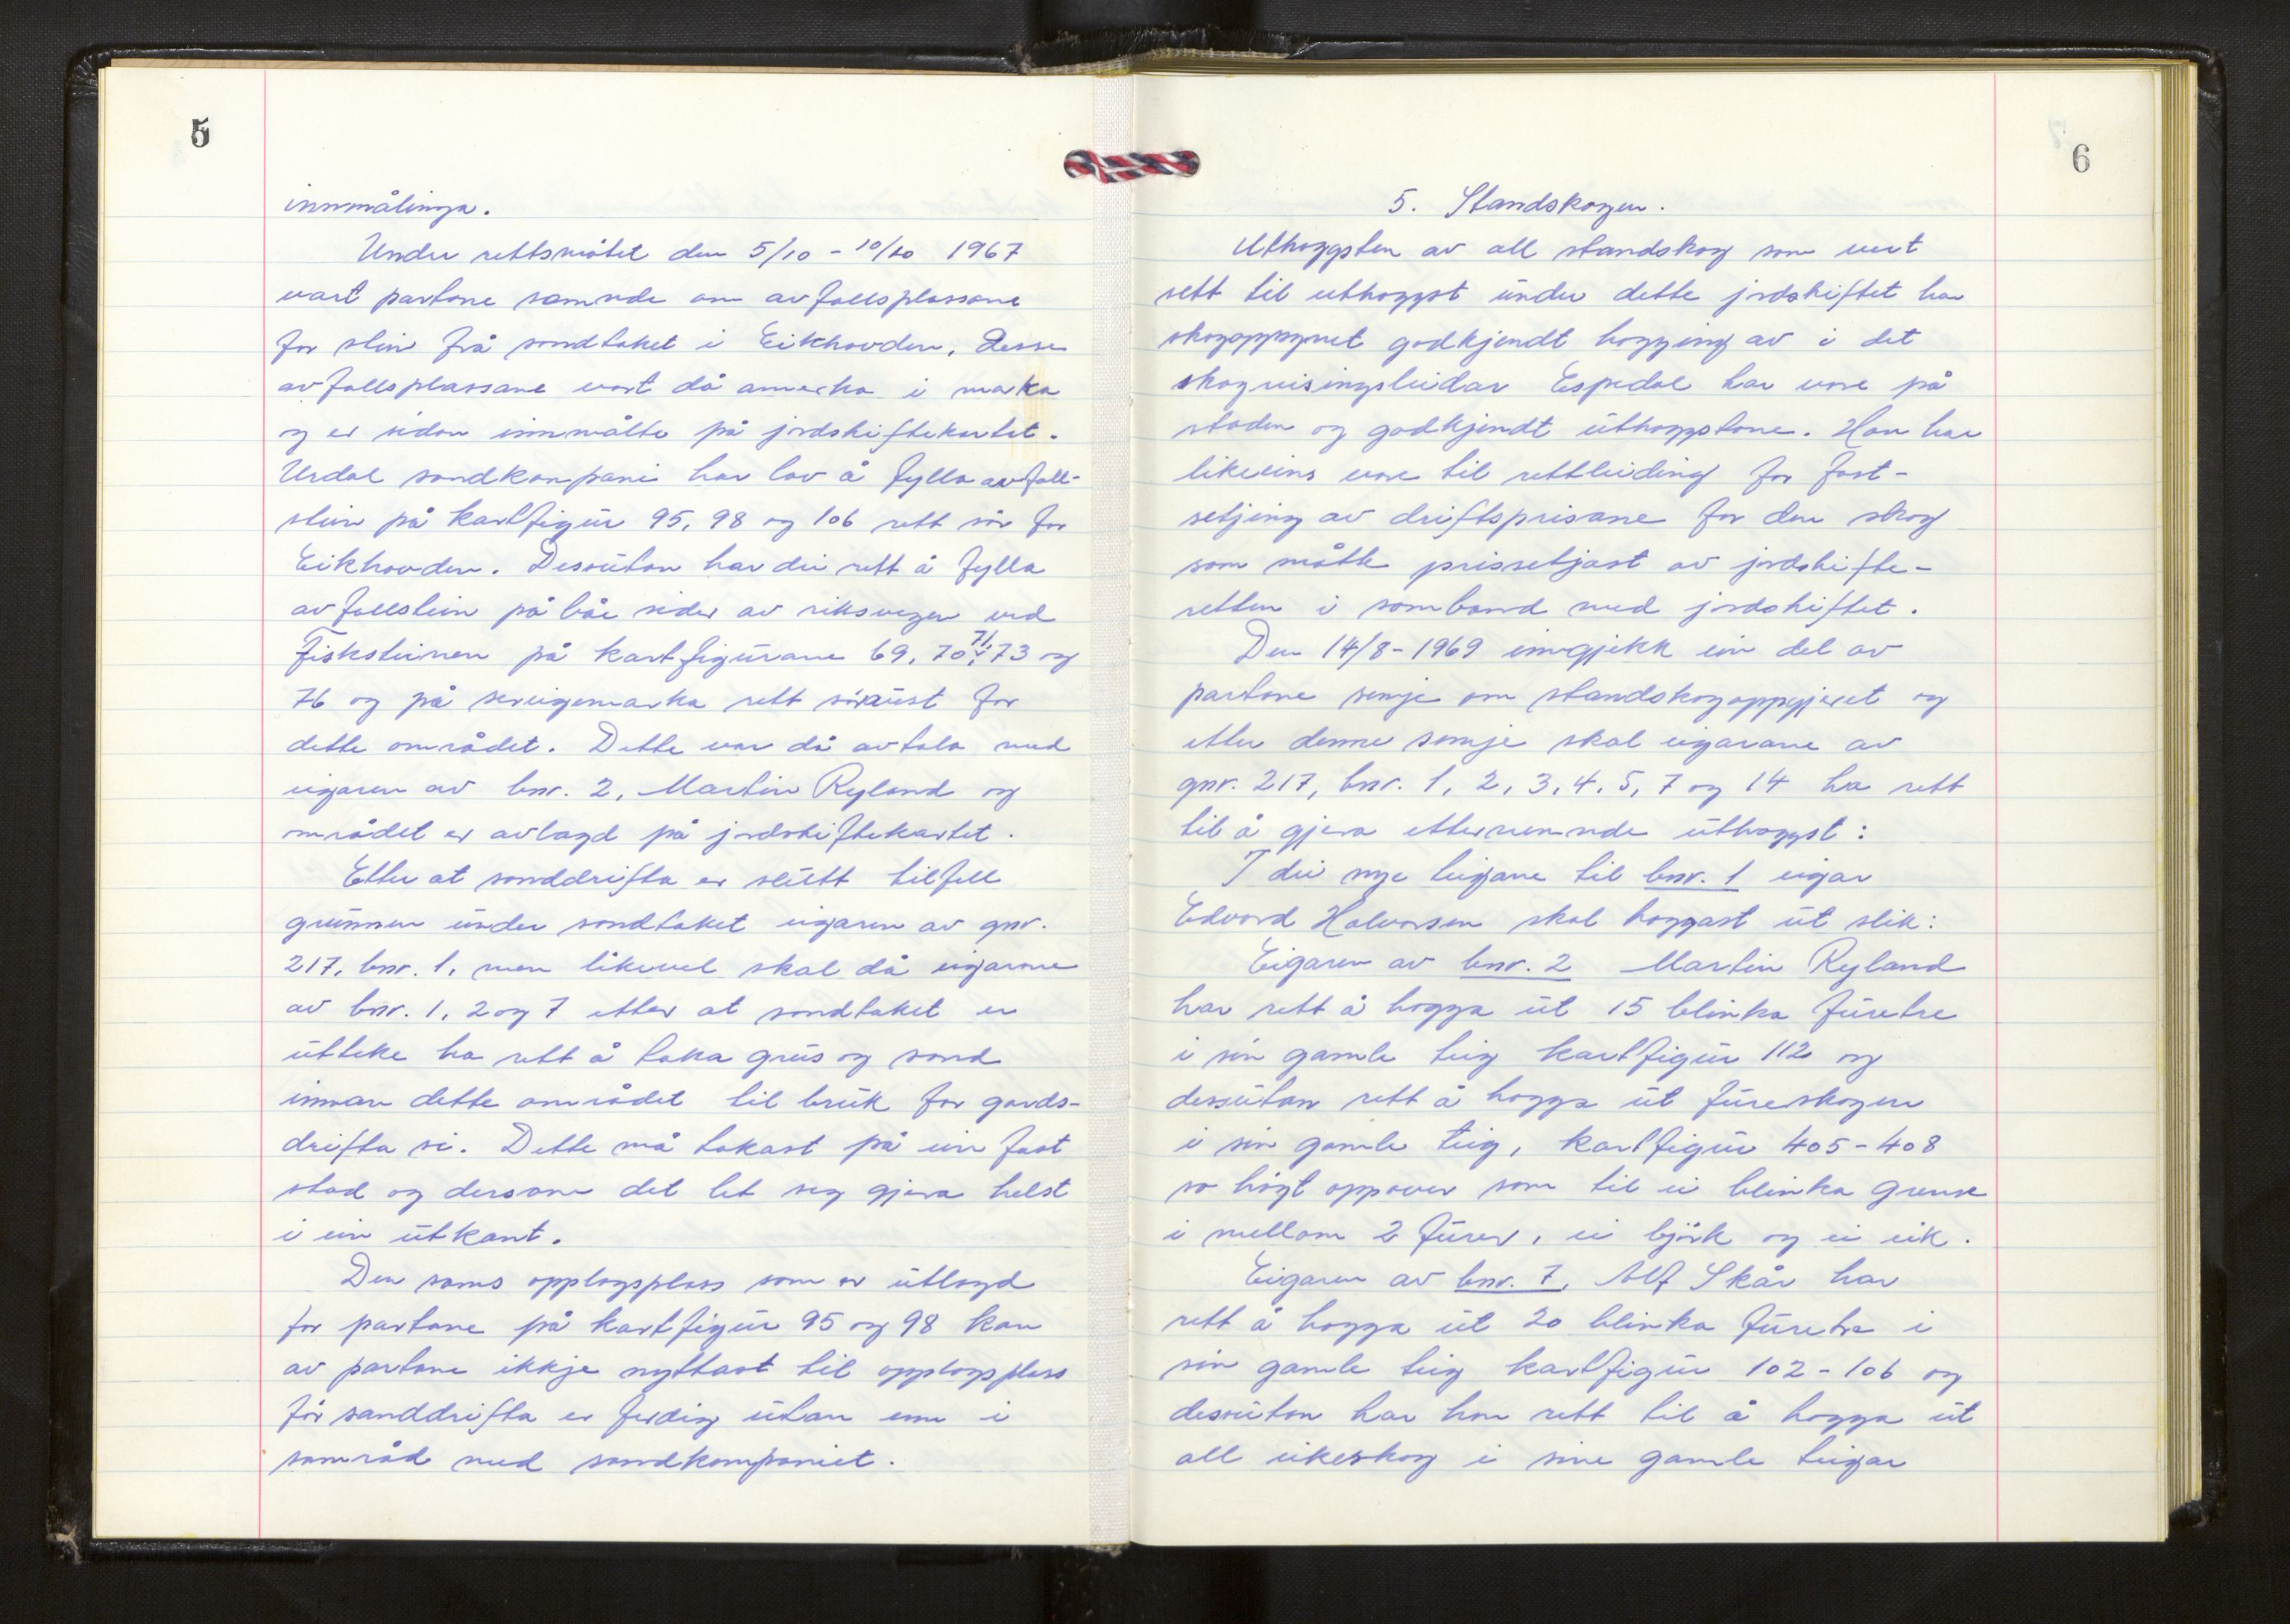 5
innmålinga.
Under rettsmøtet den 5/10 - 10/10 1967
vart partane samnde om avfallsplassane
for stein frå sandtaket i Eikhovden. Desse
avfallsplassane vart då amerka i marka
og er sidan innmålte på jordskiftekartet.
Urdal sandkompani har lov å fylla avfall-
stein på kartfigur 95, 98 og 106 rett sör for
Eikhovden. Dessutan har dei rett å fylla
avfallstein på båe sider av riksvegen ved
Fisksteinen på kartfigurane 69, 70, 71, 73 og
76 og på sereigemarka rett söraust for
dette området. Dette var då avtala med
eigaren av bnr. 2, Martin Ryland og
området er avlagd på jordskiftekartet.
Etter at sanddrifta er slutt tilfell
grunnen under sandtaket eigaren av gnr.
217, bnr. 1, men likevel skal då eigarane
av bnr. 1, 2 og 7 etter at sandtaket er
utteke ha rett å taka grus og sand
innan dette området til bruk for gards-
drifta si. Dette må takast på ein fast
stad og dersom det let seg gjera helst
i ein utkant.
Den sams opplagsplass som er utlagd
for partane på kartfigur 95 og 98 kan
av partane ikkje nyttast til opplagsplass
för sanddrifta er ferdig utan em i
samråd med sandkompaniet.
6
5. Standskogen.
Uthoggsten av all standskog som vert
sett til uthoggst under dette jordskiftet har
skogoppsynet godkjendt hogging av i det
skogreisingsleidar Espedal har vore på
staden og godkjendt uthoggstane. Han har
likeeins vore til rettleiding for fast-
setjing av driftsprisane for den skog
som måtte prissetjast av jordskifte-
retten i samband med jordskiftet.
Den 14/8 - 1969 inngjekk ein del av
partane semje om standskogoppgjeret og
etter denne semje skal eigarane av
gnr. 217, bnr. 1, 2, 3, 4, 5, 7 og 14 ha rett
til å gjera etternemnde uthoggst:
I dei nye teigane til bnr. 1 eigar
Edvard Halvorsen skal hoggast ut slik:
Eigaren av bnr. 2 Martin Ryland
har rett å hogga ut 15 blinka furetre
i sin gamle teig kartfigur 112 og
dessutan rett å hogga ut fureskogen
i sin gamle teig, kartfigur 405 - 408
so högt oppover som til ei blinka grense
i mellom 2 furer, ei björk og ei eik.
Eigaren av bnr. 7, Alf Skår har
rett å hogga ut 20 blinka furetre i
sin gamle teig kartfigur 102 - 106 og
dessutan har han rett til å hogga ut
all eikeskog i sine gamle teigar